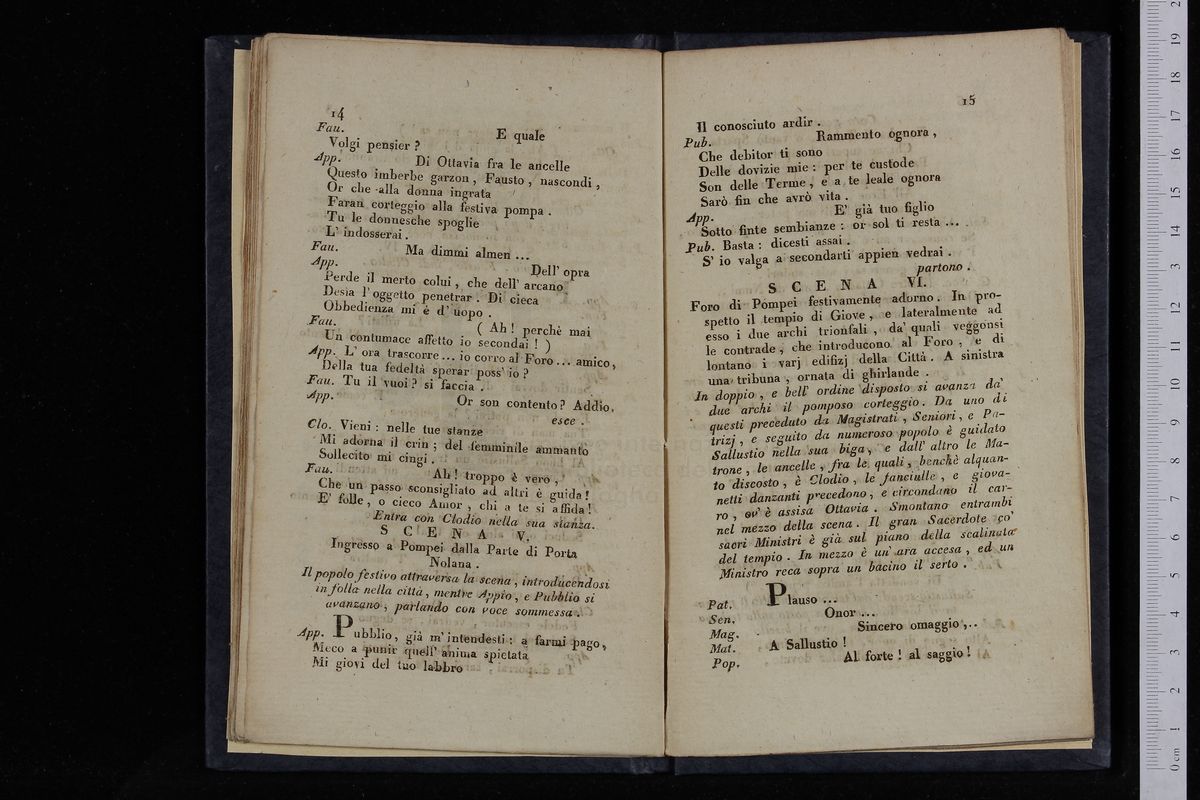 14
Fau. E quale
Volgi pensier ?
App. Di Ottavia fra le ancelle
Questo imberbe garzon , Fausto , nascondi ,
Or che alla donna ingrata
Faran corteggio alla festiva pompa .
Tu le donnesche spoglie
L' indosserai .
Fau. Ma dimmi almen ...
App. Dell' opra
Perde il merto colui , che dell' arcano
Desia l' oggetto penetrar . Di cieca
Obbedienza mi è d' uopo .
Fau. ( Ah ! perchè mai
Un contumace affetto io secondai ! )
App. L' ora trascorre ... io corro al Foro ... amico ,
Della tua fedeltà sperar poss' io ?
Fau. Tu il vuoi ? si faccia .
App. Or son contento ? Addio .
esce .
Clo. Vieni : nelle tue stanze
Mi adorna il crin ; del femminile ammanto
Sollecito mi cingi .
Fau. Ah ! troppo è vero ,
Che un passo sconsigliato ad altri è guida !
E' folle , o cieco Amor , chi a te si affida !
Entra con Clodio nella sua stanza .
S C E N A V.
Ingresso a Pompei dalla Parte di Porta
Nolana .
Il popolo festivo attraversa la scena , introducendosi
in folla nella città , mentre Appio , e Pubblio si
avanzano , parlando con voce sommessa .
App. Pubblio , già m' intendesti : a farmi pago ,
Meco a punir quell' anima spietata
Mi giovi del tuo labbro
15
Il conosciuto ardir .
Pub. Rammento ognora ,
Che debitor ti sono
Delle dovizie mie : per te custode
Son delle Terme , e a te leale ognora
Sarò fin che avrò vita .
App. E' già tuo figlio
Sotto finte sembianze : or sol ti resta ...
Pub. Basta : dicesti assai .
S' io valga a secondarti appien vedrai .
partono .
S C E N A VI.
Foro di Pompei festivamente adorno . In pro-
spetto il tempio di Giove , e lateralmente ad
esso i due archi trionfali , da' quali veggonsi
le contrade , che introducono al Foro , e di
lontano i varj edifizj della Città . A sinistra
una tribuna , ornata di ghirlande .
In doppio , e bell' ordine disposto si avanza da'
due archi il pomposo corteggio . Da uno di
questi preceduto da Magistrati , Seniori , e Pa-
trizj , e seguito da numeroso popolo è guidato
Sallustio nella sua biga , e dall' altro le Ma-
trone , le ancelle , fra le quali , benchè alquan-
to discosto , è Clodio , le fanciulle , e giova-
netti danzanti precedono , e circondano il car-
ro , ov' è assisa Ottavia . Smontano entrambi
nel mezzo della scena . Il gran Sacerdote co'
sacri Ministri è già sul piano della scalinata
del tempio . In mezzo è un' ara accesa , ed un
Ministro reca sopra un bacino il serto .
Pat. Plauso ...
Sen. Onor ...
Mag. Sincero omaggio ...
Mat. A Sallustio !
Pop. Al forte ! al saggio !